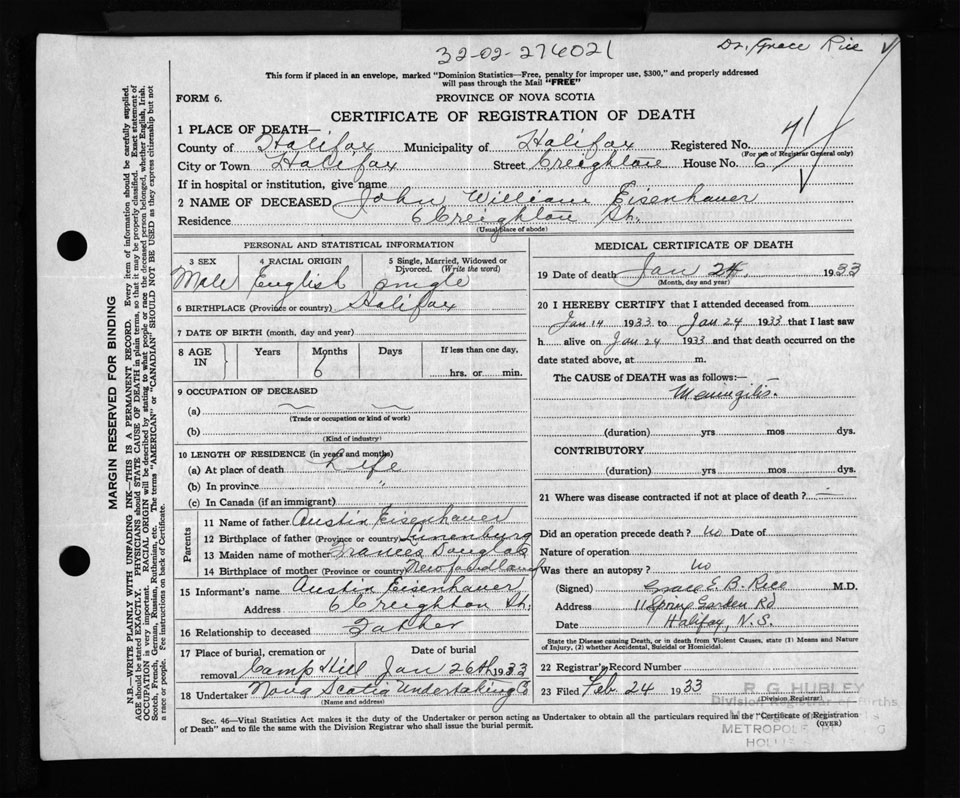 32-02-274021
Dr. Grace Rice
This form if placed in an envelope, marked "Dominion Statistics—Free, penalty for improper use, $300," and properly addressed
will pass through the Mail "FREE"
FORM 6.
PROVINCE OF NOVA SCOTIA
CERTIFICATE OF REGISTRATION OF DEATH
1 PLACE OF DEATH—
County of Halifax Municipality of Halifax Registered No.
(For use of Registrar General only)
City or Town Halifax Street Creighton House No. 6
If in hospital or institution, give name
2 NAME OF DECEASED John William Eisenhauer
Residence 6 Creighton St.
(Usual place of abode)
PERSONAL AND STATISTICAL INFORMATION
3 SEX 4 RACIAL ORIGIN 5 Single, Married, Widowed or
Divorced. (Write the word)
Male English single
6 BIRTHPLACE (Province or country) Halifax
7 DATE OF BIRTH (month, day and year)
8 AGE IN Years Months Days If less than one day,
6 hrs. or min.
9 OCCUPATION OF DECEASED
(a)
(Trade or occupation or kind of work)
(b)
(Kind of industry)
10 LENGTH OF RESIDENCE (in years and months)
(a) At place of death Life
(b) In province "
(c) In Canada (if an immigrant)
Parents
11 Name of father Austin Eisenhauer
12 Birthplace of father (Province or country) Lunenburg
13 Maiden name of mother Frances Douglas
14 Birthplace of mother (Province or country) Newfoundland
15 Informant's name Austin Eisenhauer
Address 6 Creighton St.
16 Relationship to deceased Father
17 Place of burial, cremation or Date of burial
removal Camp Hill Jan 26th 1933
18 Undertaker Nova Scotia Undertaking Co
(Name and address)
MEDICAL CERTIFICATE OF DEATH
19 Date of death Jan 24, 1933
(Month, day and year)
20 I HEREBY CERTIFY that I attended deceased from
Jan 14 1933 to Jan 24 1933 that I last saw
h alive on Jan 24 1933 and that death occurred on the
date stated above, at m.
The CAUSE OF DEATH was as follows:—
Meningitis.
(duration) yrs mos dys.
CONTRIBUTORY
(duration) yrs mos dys.
21 Where was disease contracted if not at place of death? —
Did an operation precede death? no Date of
Nature of operation
Was there an autopsy? no
(Signed) Grace E. B. Rice M.D.
Address 11 Spring Garden Rd
Date Halifax, N.S.
State the Disease causing Death, or in death from Violent Causes, state (1) Means and Nature
of Injury, (2) whether Accidental, Suicidal or Homicidal.
22 Registrar's Record Number
23 Filed Feb 24 1933
(Division Registrar)
R. G. HUBLEY
Division Registrar of Births
METROPOLE
Sec. 46—Vital Statistics Act makes it the duty of the Undertaker or person acting as Undertaker to obtain all the particulars required in the "Certificate of Registration
of Death" and to file the same with the Division Registrar who shall issue the burial permit.
(OVER)
MARGIN RESERVED FOR BINDING
N.B.—WRITE PLAINLY WITH UNFADING INK—THIS IS A PERMANENT RECORD. Every item of information should be carefully supplied.
AGE should be stated EXACTLY. PHYSICIANS should STATE CAUSE OF DEATH in plain terms, so that it may be properly classified. Exact statement of
OCCUPATION is very important. RACIAL ORIGIN will be described by stating to what people or race the deceased person belonged, whether English, Irish,
Scotch, French, German, Russian, Ruthenian, etc. The terms "AMERICAN" or "CANADIAN" SHOULD NOT BE USED as they express citizenship but not
a race or people. Fee instructions on back of Certificate.